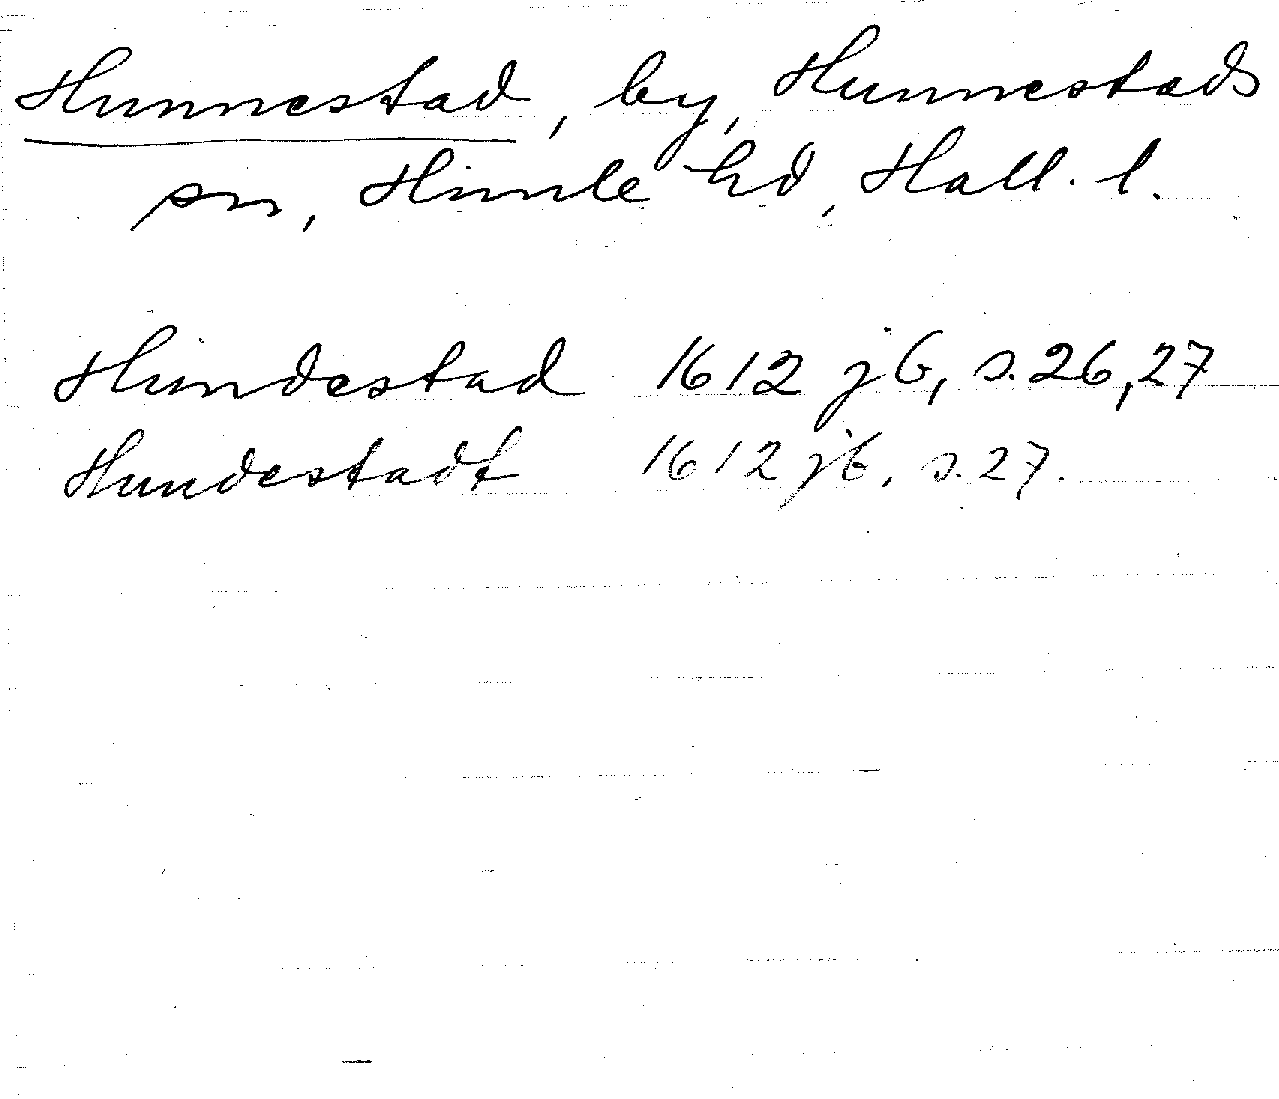 Hunnestad, by, Hunnestads
sn, Himle hd, Hall. l.
Hundestad 1612 jb, s. 26, 27
Hundestadt 1612 jb. s. 27.